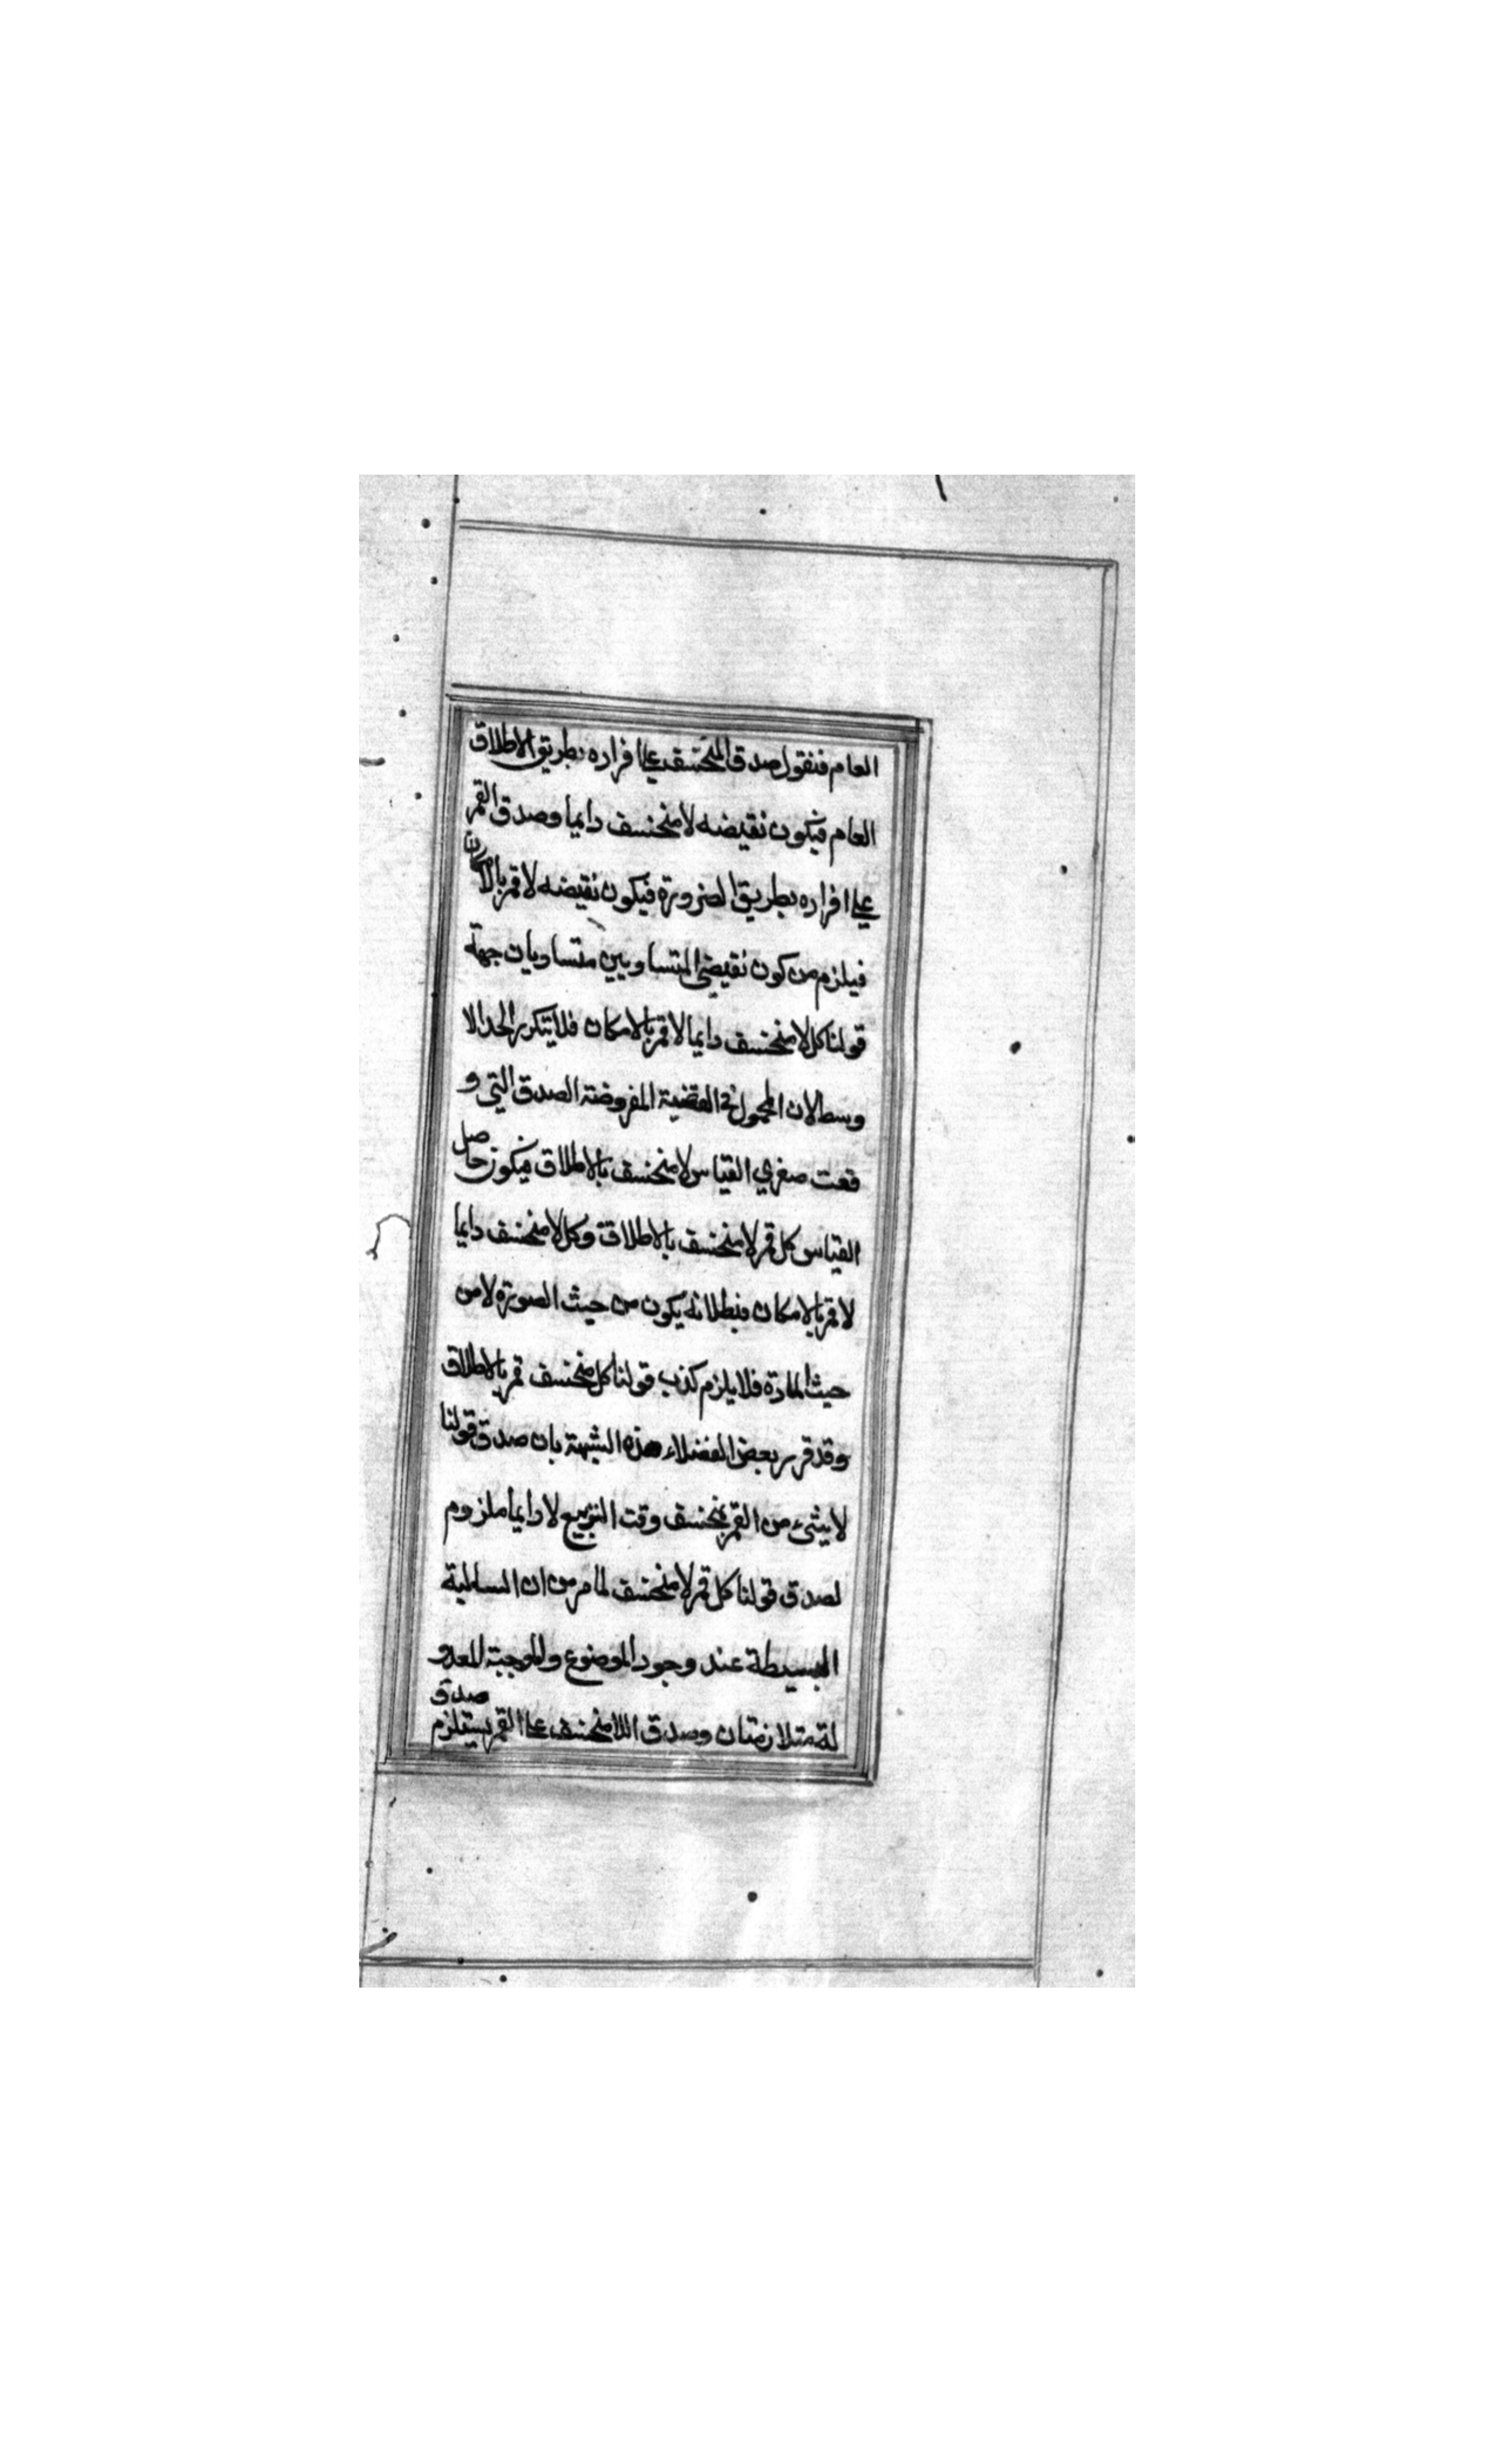 العام فنقول صدق المنخسف على افراده بطريق الاطلاق
العام فيكون نقيضه لا منخسف دايما وصدق القمر
على افراده بطريق الضرورة فيكون نقيضه لا قمر بالامكان
فيلزم من كون نقيضي المتساويين متساويات جهة
قولنا كل لا منخسف دايما لا قمر بالامكان فلا يتكرر الحد الا
وسط لان المحمول في القضية المفروضة الصدق التي و
قعت صغري القياس لا منخسف بالاطلاق فيكون حاصل
القياس كل قمر لا منخسف بالاطلاق وكل لا منخسف دايما
لا قمر بالامكان فبطلانه يكون من حيث الصورة لا من
حيث المادة فلا يلزم كذب قولنا كل منخسف قمر بالاطلاق
وقد قرر بعض الفضلاء هذه الشبهة بان صدق قولنا
لا شيء من القمر بمنخسف وقت التربيع لا دايما ملزوم
لصدق قولنا كل قمر لا منخسف لما مر من ان السالبة
البسيطة عند وجود الموضوع والموجبة المعدو
لة متلازمتان وصدق اللا منخسف على القمر يستلزم صدق